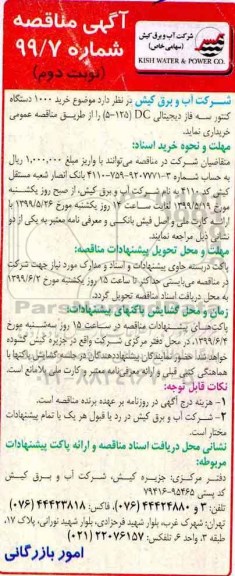 آگهی مناقصه
شماره ۹۹/۷
(نوبت دوم)
شرکت آب و برق کیش
(سهامی خاص)
KISH WATER & POWER CO.
شرکت آب و برق کیش در نظر دارد موضوع خرید ۱۰۰۰ دستگاه
کنتور سه فاز دیجیتالی DC (۵-۱۲۵) را از طریق مناقصه عمومی
خریداری نماید.
مهلت و نحوه خرید اسناد:
متقاضیان شرکت در مناقصه می‌توانند با واریز مبلغ ۱,۰۰۰,۰۰۰ ریال
به حساب شماره ۳-۹۲۰۷۷۷۱-۷۵۹-۴۱۱۰ بانک انصار شعبه مستقل
کیش کد ۴۱۱۲ به نام شرکت آب و برق کیش، از صبح روز یکشنبه
مورخ ۱۳۹۹/۵/۱۹ لغایت ساعت ۱۴ روز یکشنبه مورخ ۱۳۹۹/۵/۲۶ با
ارائه کارت ملی و اصل فیش بانکی و معرفی نامه معتبر به یکی از دو
نشانی ذیل مراجعه نمایند.
مهلت و محل تحویل پیشنهادات مناقصه:
پاکت دربسته حاوی پیشنهادات و اسناد و مدارک مورد نیاز جهت شرکت
در مناقصه می‌بایستی حداکثر تا ساعت ۱۵ روز یکشنبه مورخ ۱۳۹۹/۶/۲
به محل دریافت اسناد مناقصه تحویل گردد.
زمان و محل گشایش پاکتهای پیشنهادات:
پاکت‌های پیشنهادات مناقصه در ساعت ۱۵ روز سه‌شنبه مورخ
۱۳۹۹/۶/۴، در محل دفتر مرکزی شرکت واقع در جزیره کیش گشوده
خواهد شد. حضور نمایندگان پیشنهاددهندگان در جلسه گشایش پاکتها با
هماهنگی کتبی قبلی و ارائه معرفی‌نامه معتبر و کارت ملی بلامانع است.
نکات قابل توجه:
۱- هزینه درج آگهی در روزنامه بر عهده برنده مناقصه است.
۲- شرکت آب و برق کیش در رد یا قبول هر یک یا تمام پیشنهادات
مختار است.
نشانی محل دریافت اسناد مناقصه و ارائه پاکت پیشنهادات
مربوطه:
دفتر مرکزی: جزیره کیش، شرکت آب و برق کیش
کد پستی ۹۵۴۶۵-۷۹۴۱۶
تلفن: ۳ و ۴۴۴۲۴۸۸۰ (۰۷۶)، فاکس: ۴۴۴۲۳۸۱۸ (۰۷۶)
تهران: شهرک غرب، بلوار شهید فرحزادی، بلوار شهید نورانی، پلاک ۱۷،
طبقه ۳، واحد ۶، تلفکس: ۲۲۰۷۶۱۵۷ (۰۲۱)
امور بازرگانی